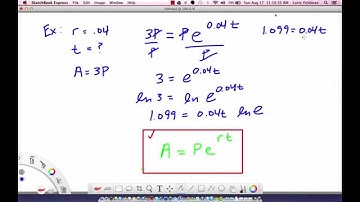 SketchBook Express
Sun Aug 17 11:10:15 AM Larry Feldman
Ex: r = .04
t = ?
A = 3P
3P = Pe^0.04t
P P
3 = e^0.04t
ln 3 = ln e^0.04t
1.099 = 0.04t ln e
A = Pe^rt
1.099 = 0.04t